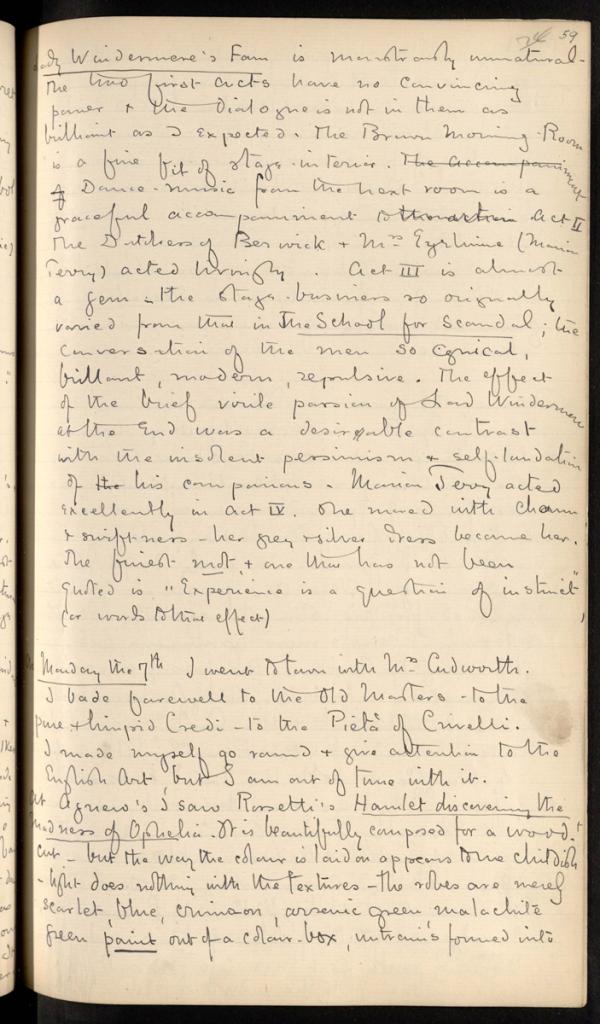 59
Lady Windermere's Fan is monstrously unnatural -
the two first acts have no convincing
power & the Dialogue is not in them as
brilliant as I expected. The Brown Morning-Room
is a fine bit of stage-interior. The accompaniment
of Dance-music from the next room is a
graceful accompaniment to Act II
The Dutchess of Berwick & Mrs Erlynne (Marion
Terry) acted livingly. Act III is almost
a gem - the stage-business so originally
varied from that in The School for Scandal; the
conversation of the men so cynical,
brilliant, modern, repulsive. The effect
of the brief virile passion of Lord Windermere
at the End was a desirable contrast
with the insolent pessimism & self-laudation
of the his companions. Marion Terry acted
excellently in Act IV. She moved with charm
& swiftness - her grey & silver dress became her.
The finest mot, & one that has not been
quoted is "Experience is a question of instinct"
(or words to that effect)
On Monday the 7th I went to town with Mrs Cudworth.
I bade farewell to the Old Masters - to the
pure & limpid Credi - to the Pietà of Crivelli.
I made myself go round & give attention to the
English Art, but I am out of tune with it.
At Agnew's I saw Rossetti's Hamlet discovering the
madness of Ophelia. It is beautifully composed for a wood-
cut - but the way the colour is laid on appears to me childish
- light does nothing with the textures - the robes are merely
scarlet, blue, crimson, arsenic green malachite
green paint out of a colour-box, untransformed into